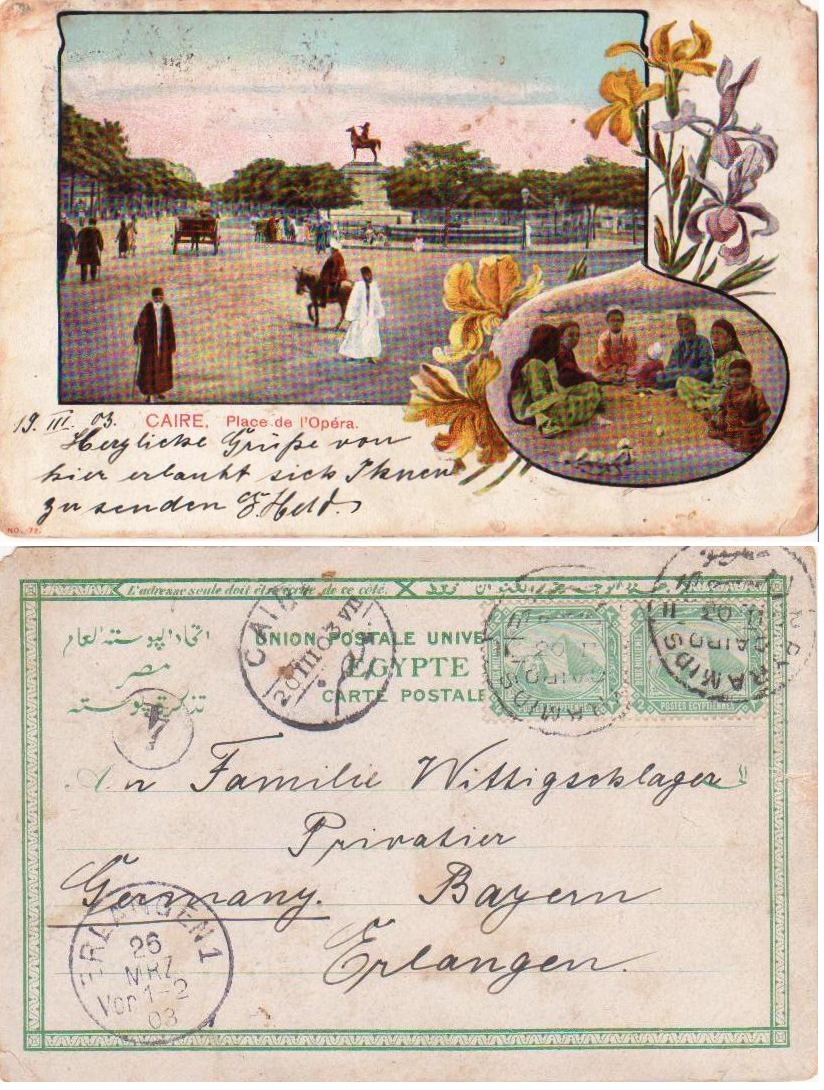 19. III. 03. CAIRE, Place de l'Opéra.
Herzliche Grüße von
hier erlaubt sich Ihnen
zu senden F. Held.
NO. 72.
L'adresse seule doit être de ce côté.
اتحاد البوسته العام
مصر
تذكرة بوسته
UNION POSTALE UNIVE
EGYPTE
CARTE POSTALE
CAIRO
20 III 03 VII
POSTES EGYPTIENNES
POSTES EGYPTIENNES
PYRAMIDS
CAIRO
03
PYRAMIDS
CAIRO
03
An Familie Wittigschlager
Privatier
Germany. Bayern
Erlangen.
ERLANGEN 1
26
MRZ
Vor 1-2
03